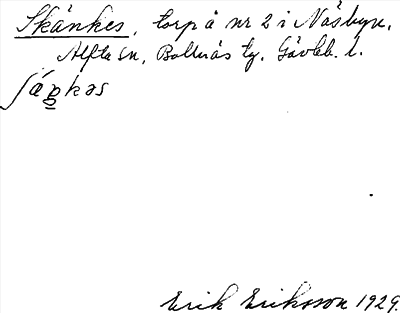 Skånkes, torp å nr 2 i Näsbyn,
Alfta sn, Bollnäs tg. Gävleb. l.
Erik Eriksson 1929.